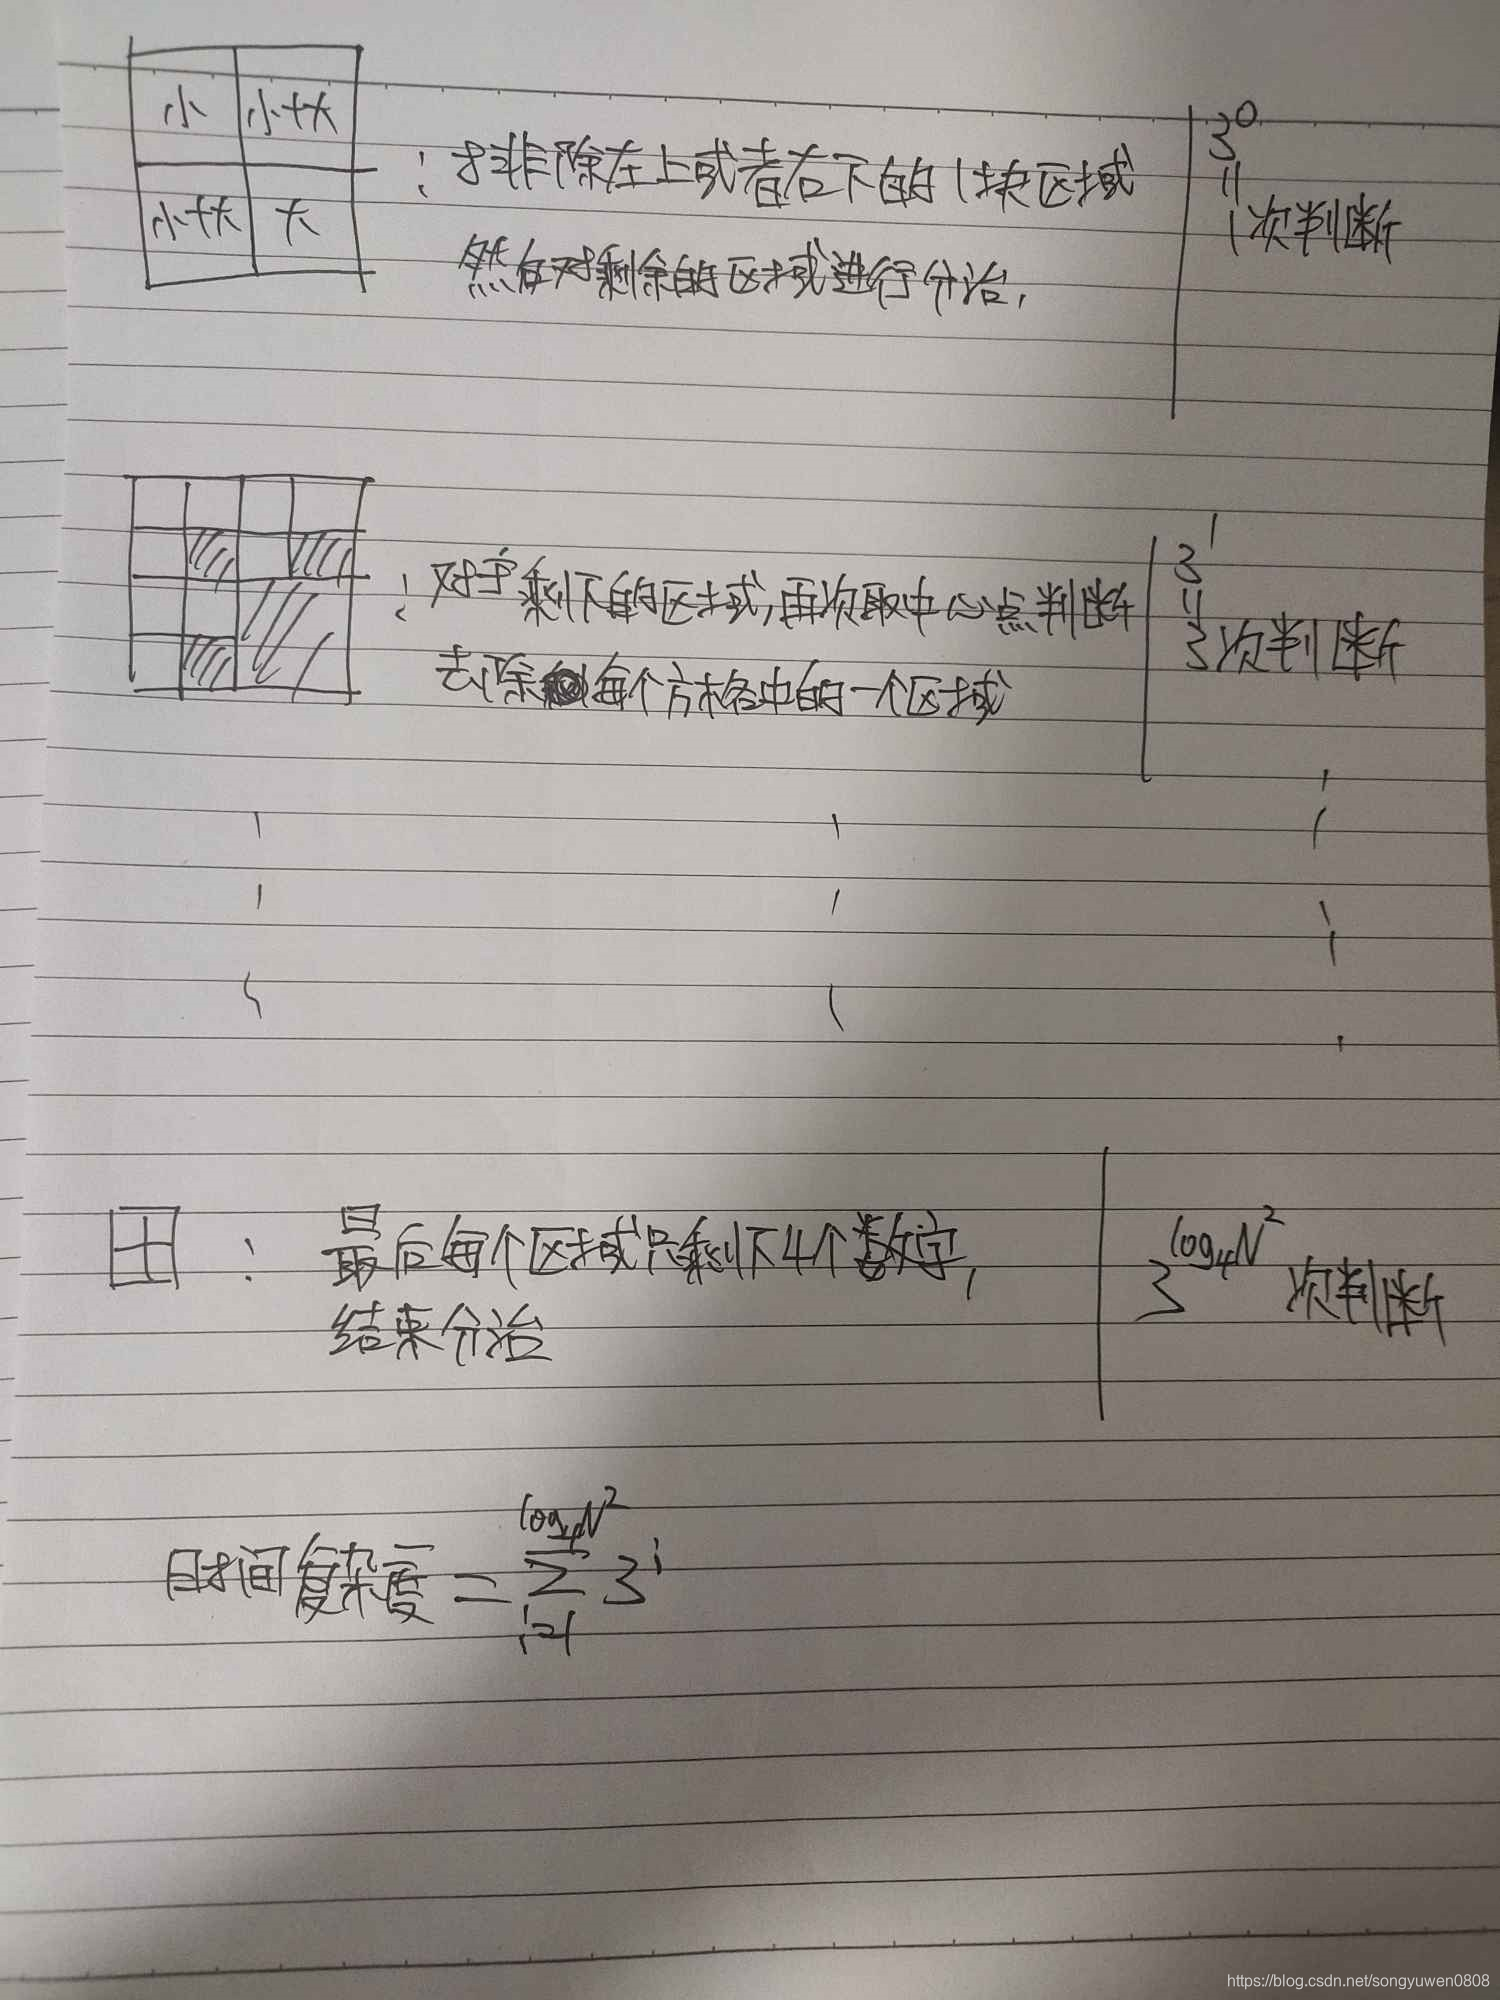 小 小+大
小+大 大
: 排除左上或者右下的1块区域
然后对剩余的区域进行分治,
3^0
=
1次判断
: 对于剩下的区域,再次取中心点判断
去除每个方格中的一个区域
3^1
=
3次判断
: 最后每个区域只剩下4个数字,
结束分治
3^{log_4 N^2} 次判断
时间复杂度 = \sum_{i=1}^{log_4 N^2} 3^i
https://blog.csdn.net/songyuwen0808